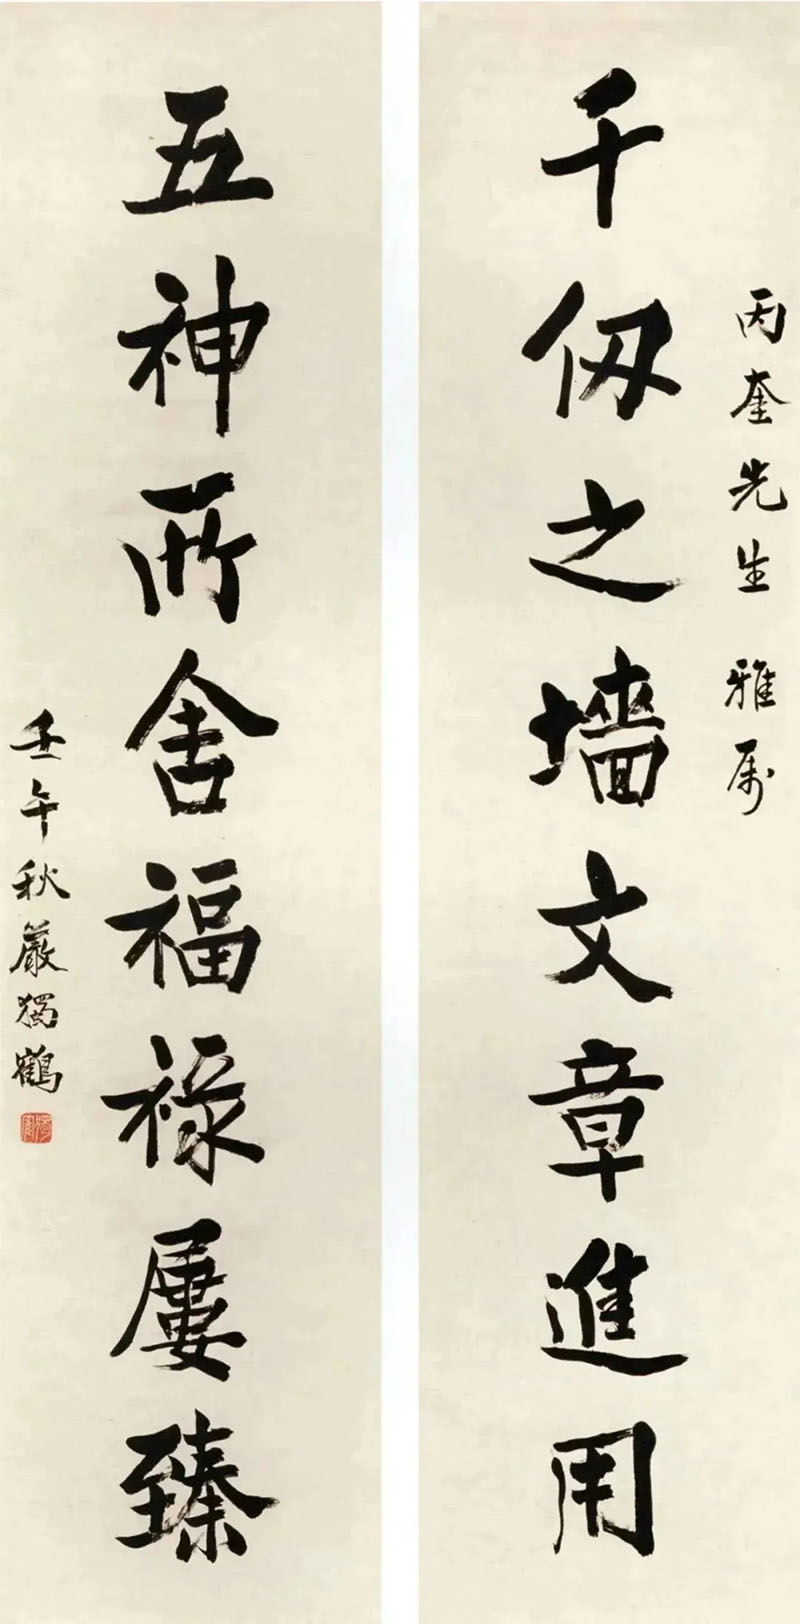 丙奎先生 雅属
千仞之墙文章進用
五神所舍福禄屢臻
壬午秋嚴獨鶴